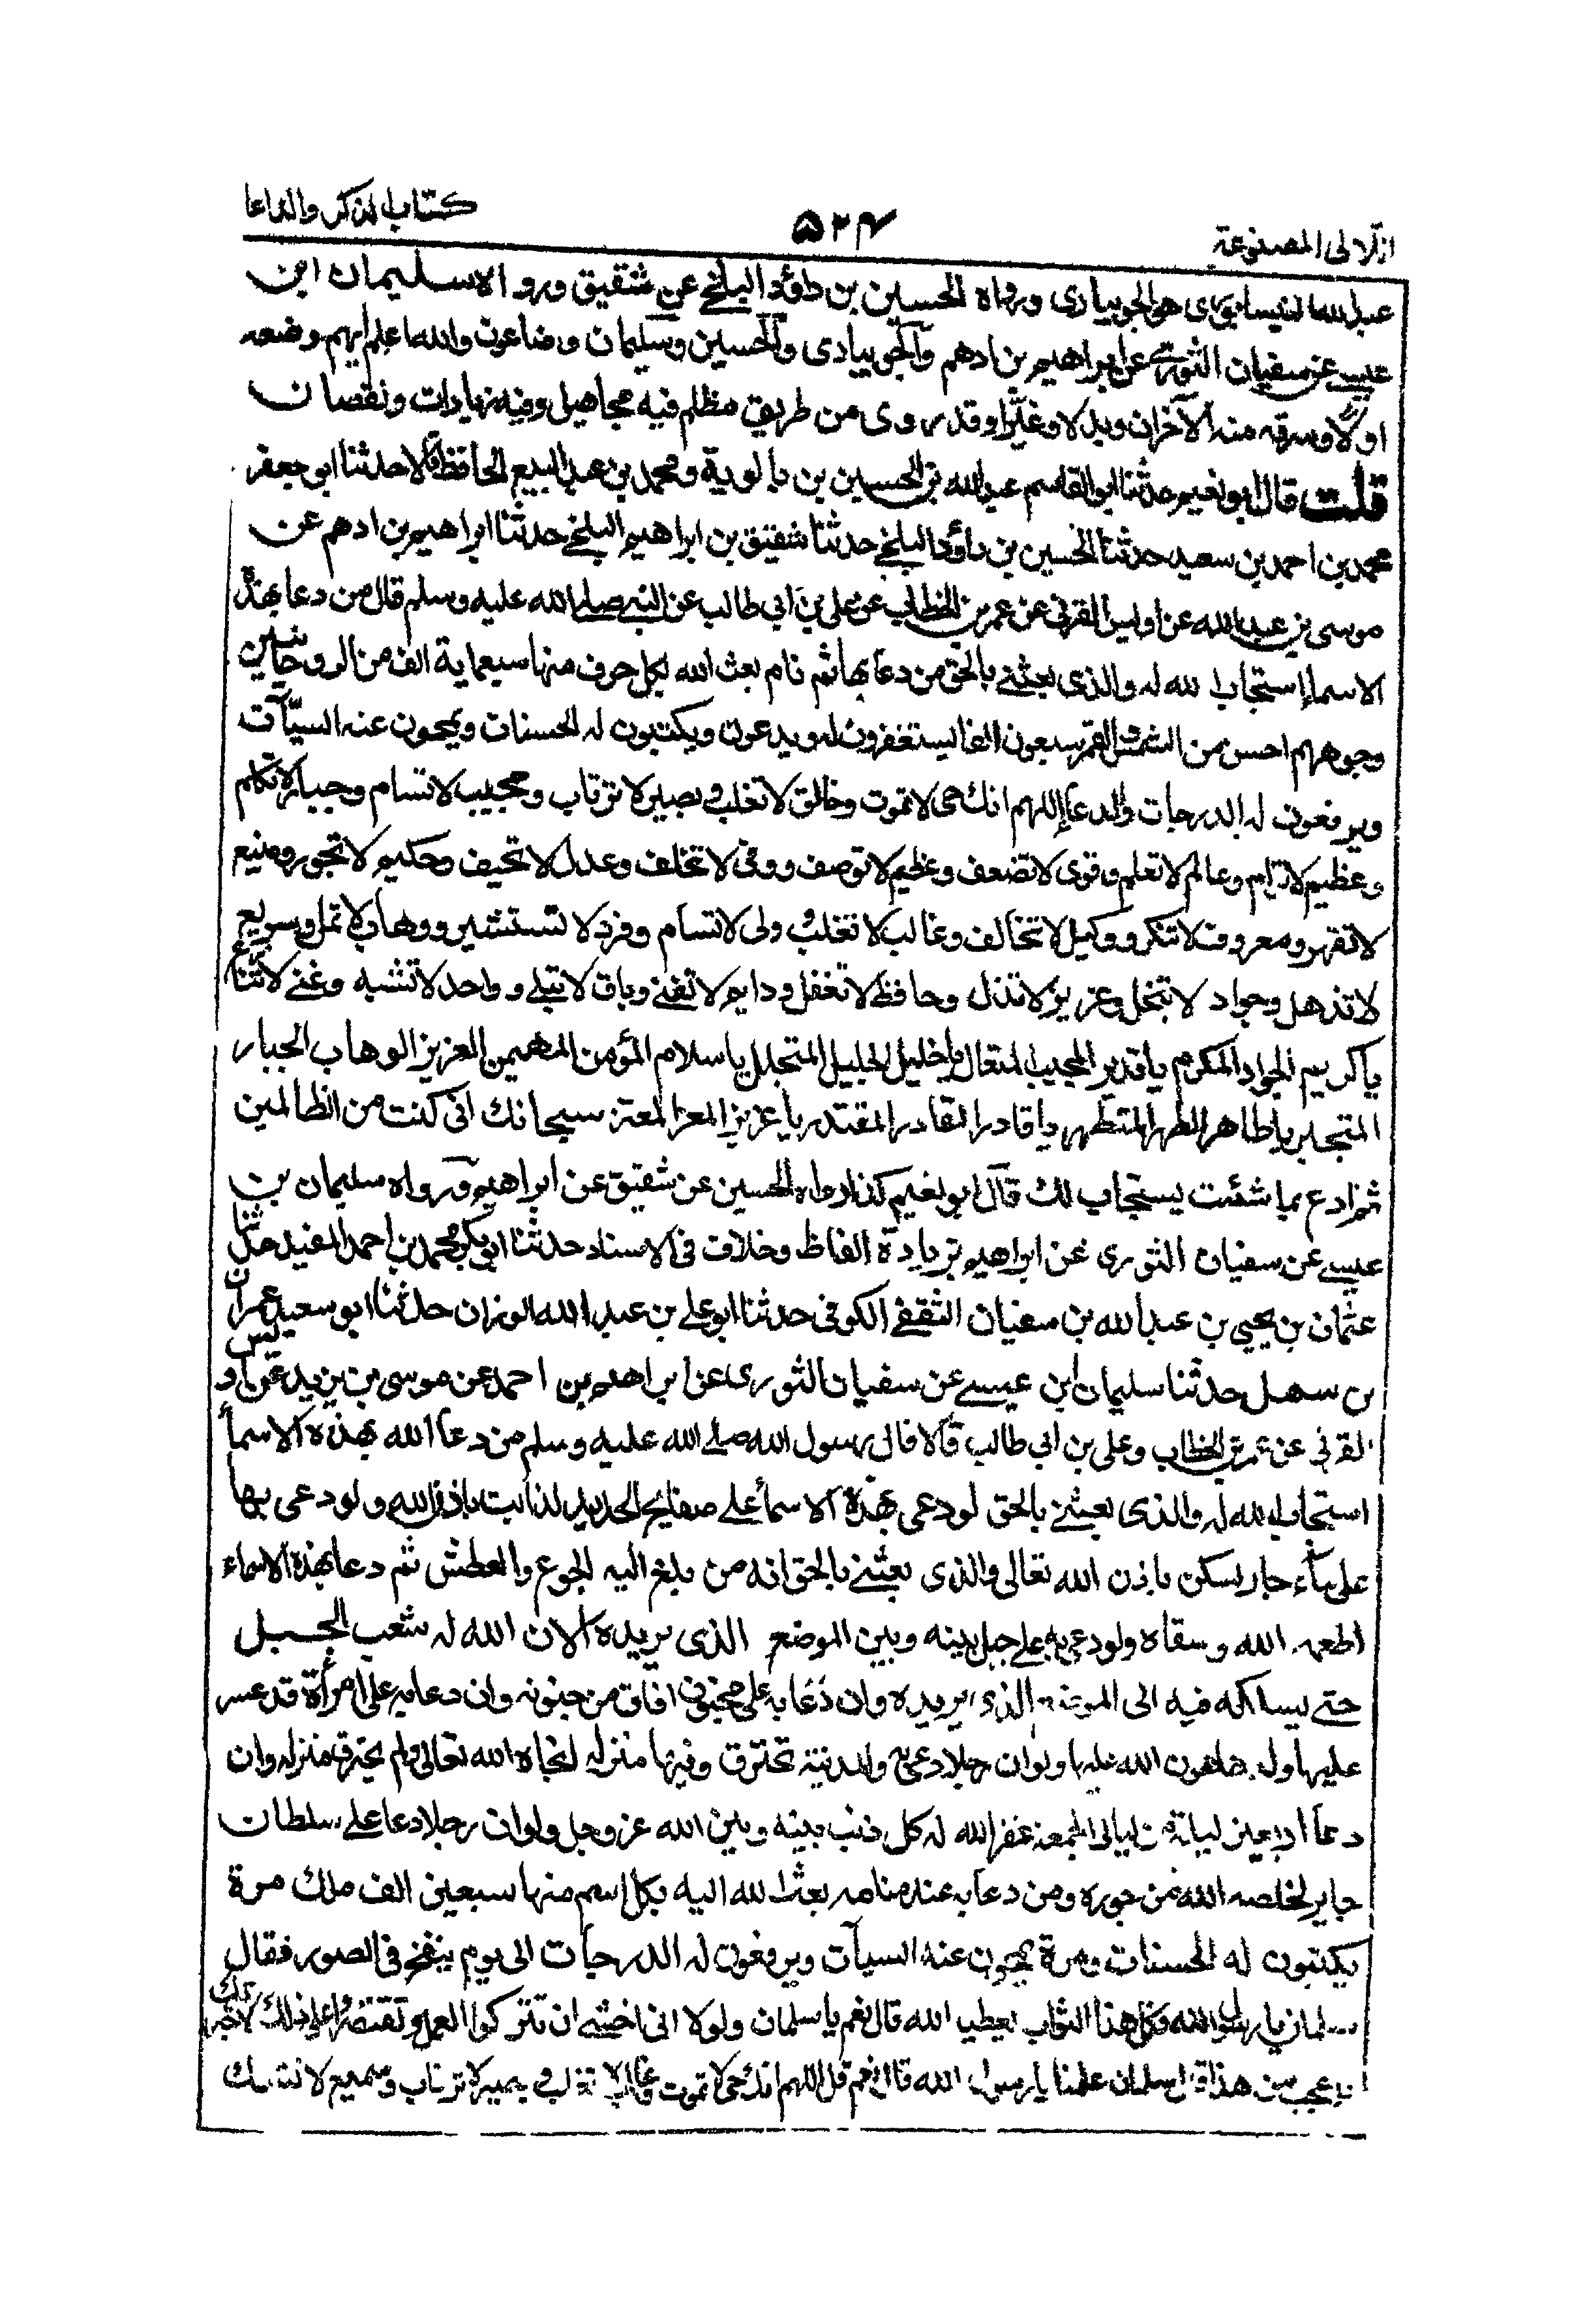 كتاب الذكر والدعا
۵۲۴
الآلی المصنوعة
عبد الله النيسابوری هو الجويباری ورواه الحسين بن داؤد البلخے عن شقيق ورواه سليمان ابن
عيسے عن سفيان الثوری عن ابراهيم بن ادهم والجويباری والحسين وسليمان وضاعون والله اعلم ايهم وضعه
اولا وسرقه منه الآخران وبدلا وغيرا وقد روی من طريق مظلم فيه مجاهيل وفيه زيادات ونقصان
قلت قال ابو نعيم حدثنا ابو القاسم عبد الله بن الحسين بن بالوية ومحمد بن عبد البيع الحافظ قالا حدثنا ابی جعفر
محمد بن احمد بن سعيد حدثنا الحسين بن داؤد البلخے حدثنا شقيق بن ابراهيم البلخے حدثنا ابراهيم بن ادهم عن
موسی بن عبد الله عن اويس القرنی عن عمر بن الخطاب عن علی بن ابی طالب عن النبی صلے الله عليه وسلم قال من دعا بهذه
الاسماء استجاب لله له والذی بعثنے بالحق من دعا بها ثم نام بعث الله بكل حرف منها سبعماية الف من الروحانيين
وجوههم احسن من الشمس القمر سبعون الفا يستغفرون له ويدعون ويكتبون له الحسنات ويمحون عنه السيّآت
ويرفعون له الدرجات والدعاء اللهم انك حی لا تموت وخالق لا تغلب وبصير لا ترتاب ومجيب لا تسام وجبار لا تكلم
وعظيم لا ترام وعالم لا تعلم وقوی لا تضعف وعظيم لا توصف ووفی لا تخلف وعدل لا تحيف وحكيم لا تجور ومنيع
لا تقهر ومعروف لا تنكر ووكيل لا تخالف وغالب لا تغلب وولی لا تسام وفرد لا تستشير ووهاب لا تمل وسريع
لا تذهل وجواد لا تبخل وعزيز لا تذل وحافظ لا تغفل ودايم لا تفنے وباق لا تبلے وواحد لا تشبه وغنے لا تنازع
يا كريم الجواد المكرم يا قدير المجيب المتعال يا جليل الجليل المتجلل يا سلام المؤمن المهيمن العزيز الوهاب الجبار
المتجبر يا طاهر الطهر المتطهر يا قادر القادر المقتدر يا عزيز المعز المعتز سبحانك انی كنت من الظالمين
ثم ادع بما شئت يستجاب لك قال ابو نعيم كذا رواه الحسين عن شقيق عن ابراهيم ورواه سليمان بن
عيسے عن سفيان الثوری عن ابراهيم بزيادة الفاظ وخلاف فی الاسناد حدثنا ابی بكر محمد بن احمد المفيد حدثنا
عثمان بن يحيی بن عبد الله بن سفيان الثقفے الكوفی حدثنا ابو علی بن عبد الله الوزان حدثنا ابو سعيد عمران
بن سهل حدثنا سليمان ابن عيسے عن سفيان الثوری عن ابراهيم بن احمد عن موسی بن يزيد عن اويس
القرنی عن عمر بن الخطاب وعلی بن ابی طالب قالا قال رسول الله صلے الله عليه وسلم من دعا الله بهذه الاسمأ
استجاب لله له والذی بعثنے بالحق لو دعی بهذه الاسمأ علے صفايح الحديد لذابت باذن الله ولو دعی بها
علی ماء جار لسكن باذن الله تعالی والذی بعثنے بالحق انه من بلغ اليه الجوع والعطش ثم دعا بهذه الاسماء
اطعمه الله وسقاه ولو دعی به علے جبل بينه وبين الموضع الذی يريده الان الله له شعب الجبل
حتے يسلكه فيه الی الموضع الذی يريده وان دعا به علی مجنون افاق من جنونه وان دعا به علی امرأة قد عسر
عليها ولدها هون الله عليها ولو ان رجلا دعی به والمدنية تحترق وفيها منزله لنجاه الله تعالی ولم يحترق منزله وان
دعا اربعين ليلة من ليالی الجمعة غفر الله له كل ذنب بينه وبين الله عز وجل ولو ان رجلا دعا علے سلطان
جاير لخلصه الله من جوره ومن دعا به عند منامه بعث الله اليه بكل اسم منها سبعين الف ملك مرة
يكتبون له الحسنات ومرة يمحون عنه السيآت ويرفعون له الدرجات الی يوم ينفخ فی الصور فقال
سلمان يا رسول الله وكل هذا الثواب يعطيه الله قال نعم يا سلمان ولولا انی اخشے ان تتركوا العمل وتقتصروا علے ذلك لاخبرتك
باعجب من هذا قال سلمان علمنا يا رسول الله قال نعم قل اللهم انك حی لا تموت وغالب لا تغلب وبصير لا ترتاب وسميع لا تشك